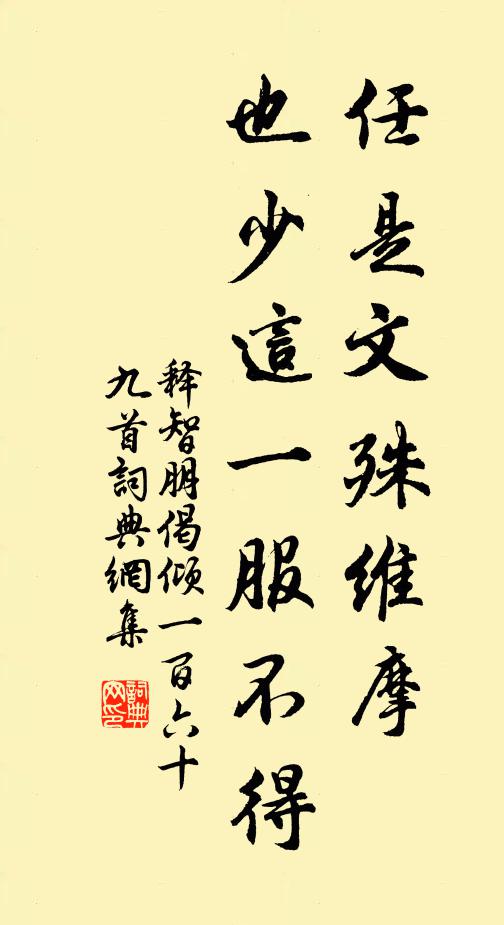 任是文殊維摩
也少這一服不得
释智朋偈倾一百六十
九首詞典網集
詞典
网印